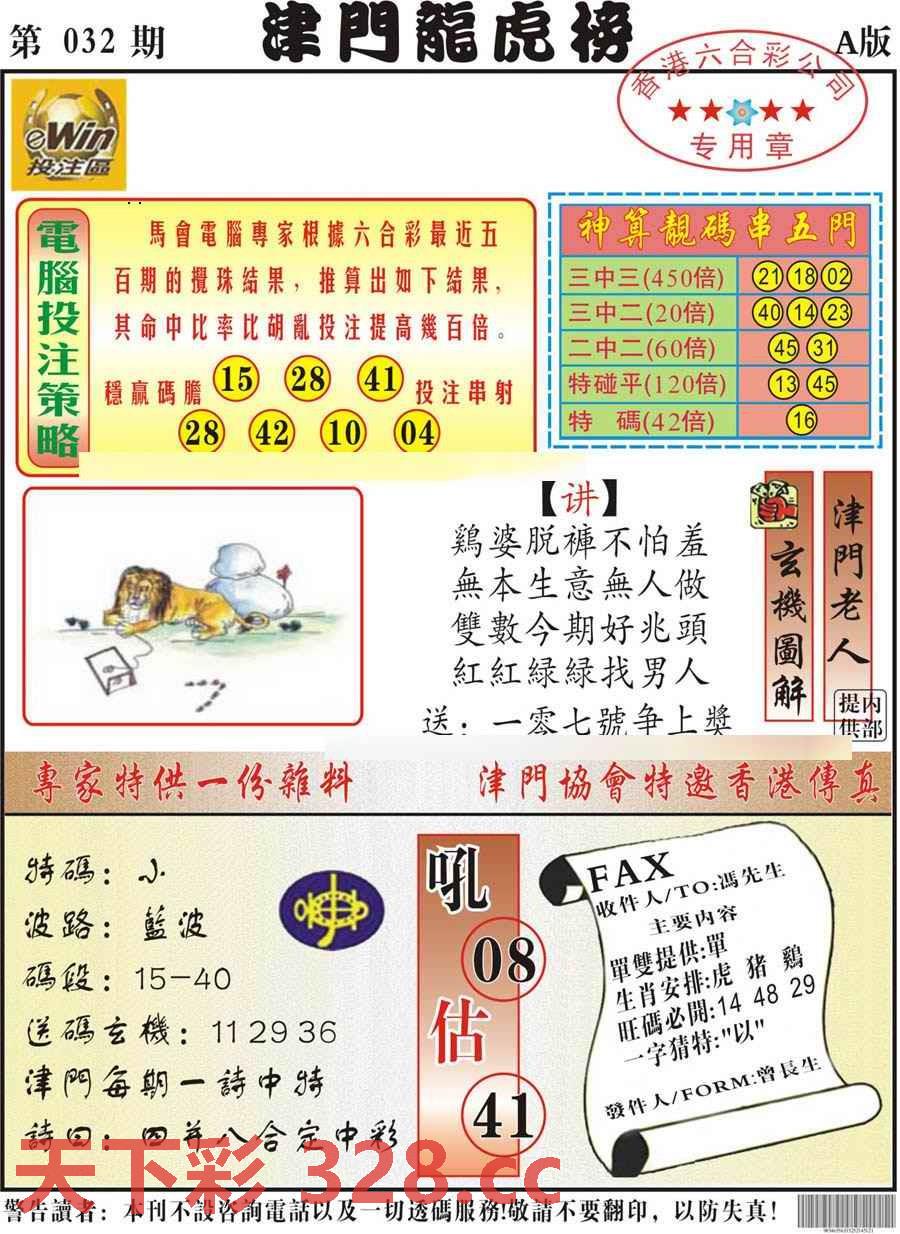 第 032 期
津門龍虎榜
A版
香港六合彩公司
专用章
eWin
投注區
電腦投注策略
馬會電腦專家根據六合彩最近五
百期的攪珠結果，推算出如下結果，
其命中比率比胡亂投注提高幾百倍。
穩贏碼膽 15 28 41 投注串射
28 42 10 04
神算靚碼串五門
三中三(450倍) 21 18 02
三中二(20倍) 40 14 23
二中二(60倍) 45 31
特碰平(120倍) 13 45
特 碼(42倍) 16
【讲】
鷄婆脱褲不怕羞
無本生意無人做
雙數今期好兆頭
紅紅緑緑找男人
送：一零七號争上獎
玄機圖解
津門老人
内部提供
專家特供一份雜料
津門協會特邀香港傳真
特碼：小
波路：藍波
碼段：15-40
送碼玄機：11 29 36
津門每期一詩中特
詩曰：四并八合定中彩
吼
08
估
41
FAX
收件人/TO:馮先生
主要内容
單雙提供:單
生肖安排:虎 猪 鷄
旺碼必開:14 48 29
一字猜特:"以"
發件人/FORM:曾長生
天下彩 328.cc
警告讀者：本刊不設咨詢電話以及一切透碼服務!敬請不要翻印，以防失真!